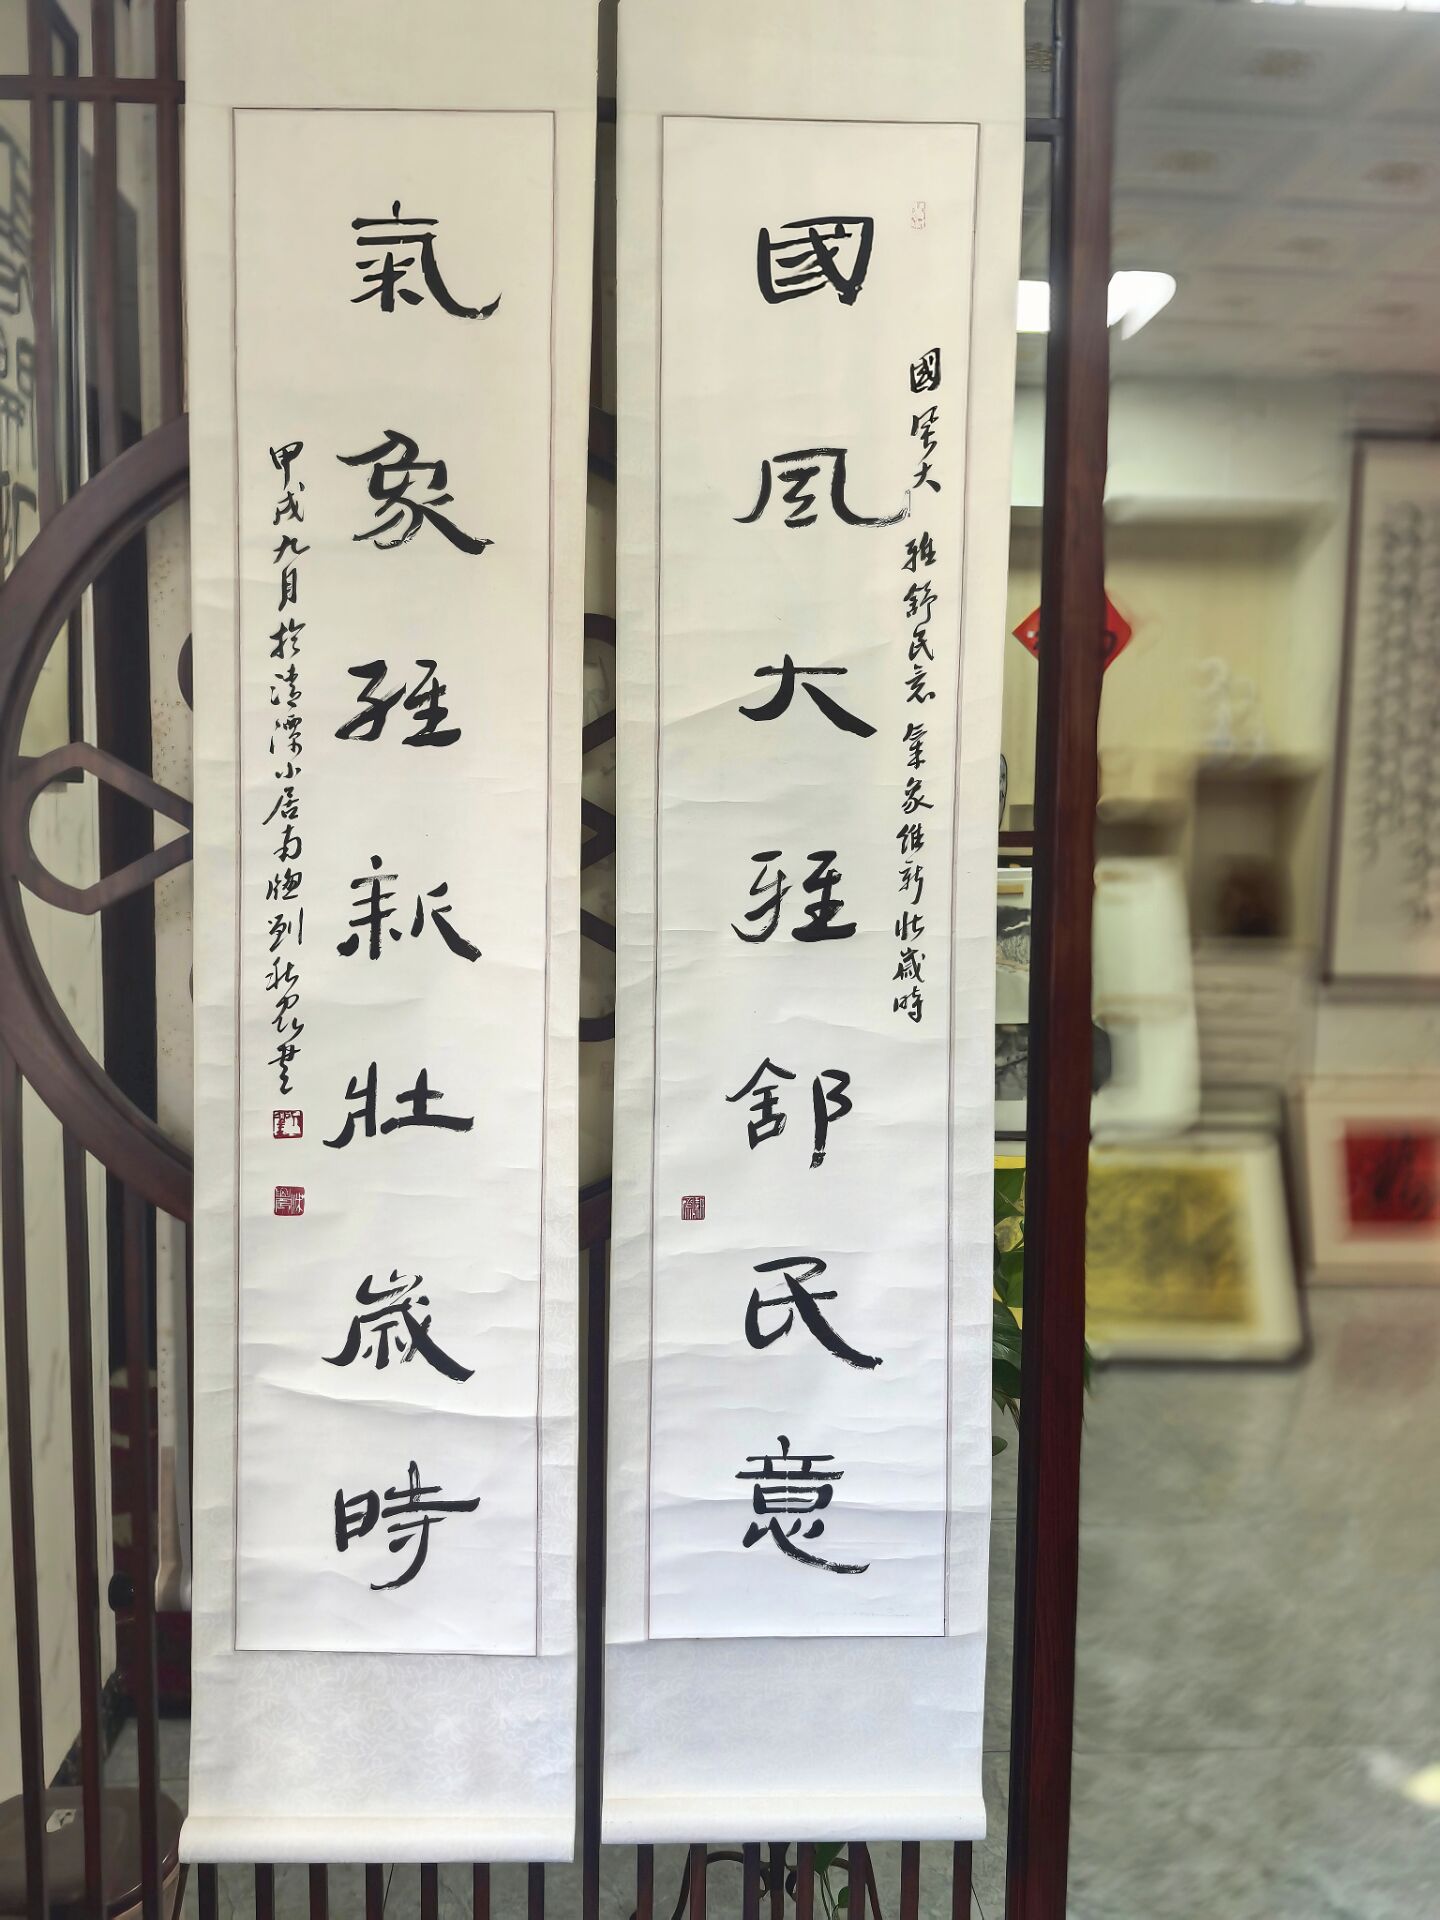 國風大雅舒民意
國風大雅舒民意氣象維新壯歲時
氣象維新壯歲時
甲戌九月於清潭小居南牕劉秋